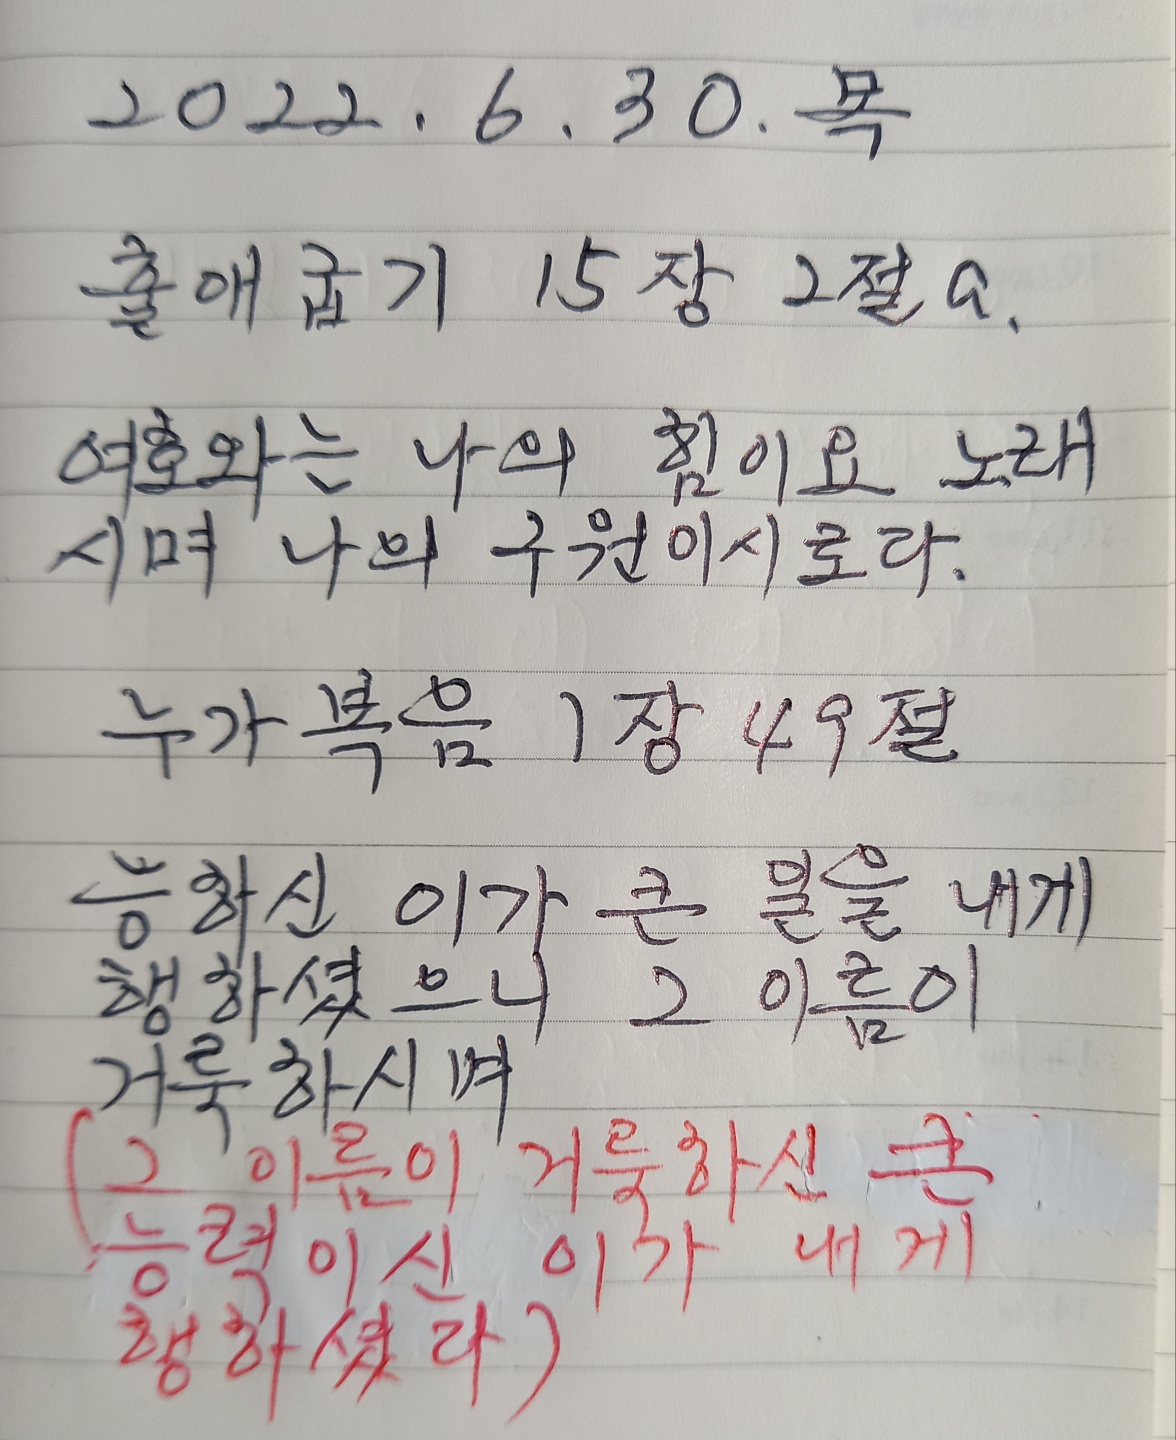 2022. 6. 30. 목
출애굽기 15장 2절 a.
여호와는 나의 힘이요 노래
시며 나의 구원이시로다.
누가복음 1장 49절
능하신 이가 큰 일을 내게
행하셨으니 그 이름이
거룩하시며
(그 이름이 거룩하신 큰
능력이신 이가 내게
행하셨다)